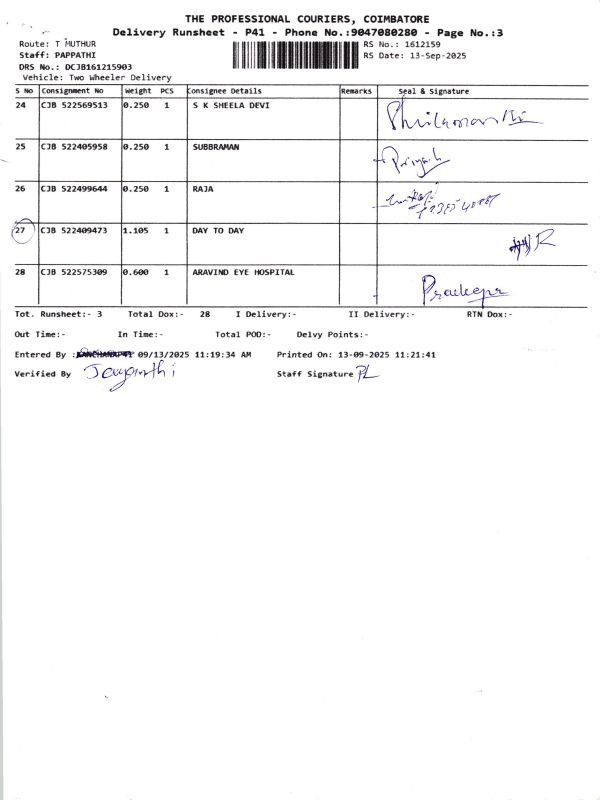 THE PROFESSIONAL COURIERS, COIMBATORE
Delivery Runsheet - P41 - Phone No.:9047080280 - Page No.:3
Route: T MUTHUR
RS No.: 1612159
Staff: PAPPATHI
RS Date: 13-Sep-2025
DRS No.: DCJB161215903
Vehicle: Two Wheeler Delivery
S No Consignment No Weight PCS Consignee Details Remarks Seal & Signature
24 CJB 522569513 0.250 1 S K SHEELA DEVI
25 CJB 522405958 0.250 1 SUBBRAMAN Priyash
26 CJB 522499644 0.250 1 RAJA
27 CJB 522409473 1.105 1 DAY TO DAY R
28 CJB 522575309 0.600 1 ARAVIND EYE HOSPITAL Pradeepa
Tot. Runsheet:- 3 Total Dox:- 28 I Delivery:- II Delivery:- RTN Dox:-
Out Time:- In Time:- Total POD:- Delvy Points:-
Entered By : 09/13/2025 11:19:34 AM Printed On: 13-09-2025 11:21:41
Verified By Jayanthi Staff Signature PL